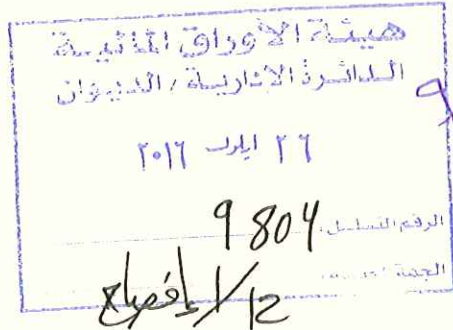 هيئة الأوراق المالية
الدائرة الادارية / الديوان
٢٦ ايلول ٢٠١٦
الرقم التسلسلي 9804
الجهة
12/ إفصاح